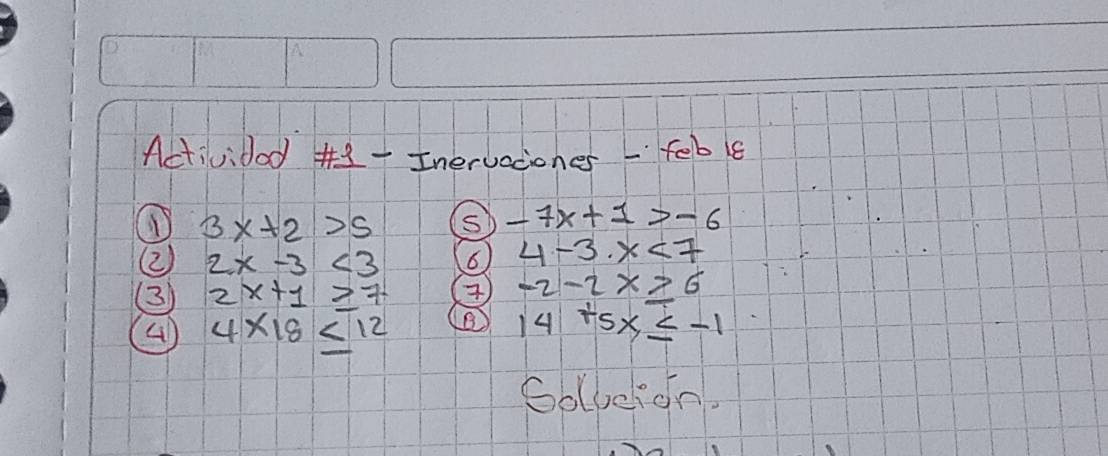 D M A
Actividad #1 - Inecuaciones - feb 18
① 3x+2 >5
② 2x-3 <3
③ 2x+1 ≥7
④ 4x18 ≤12
⑤ -7x+1 >-6
⑥ 4-3.x<7
⑦ -2-2x≥6
⑧ 14 +5x ≤ -1
Solución.